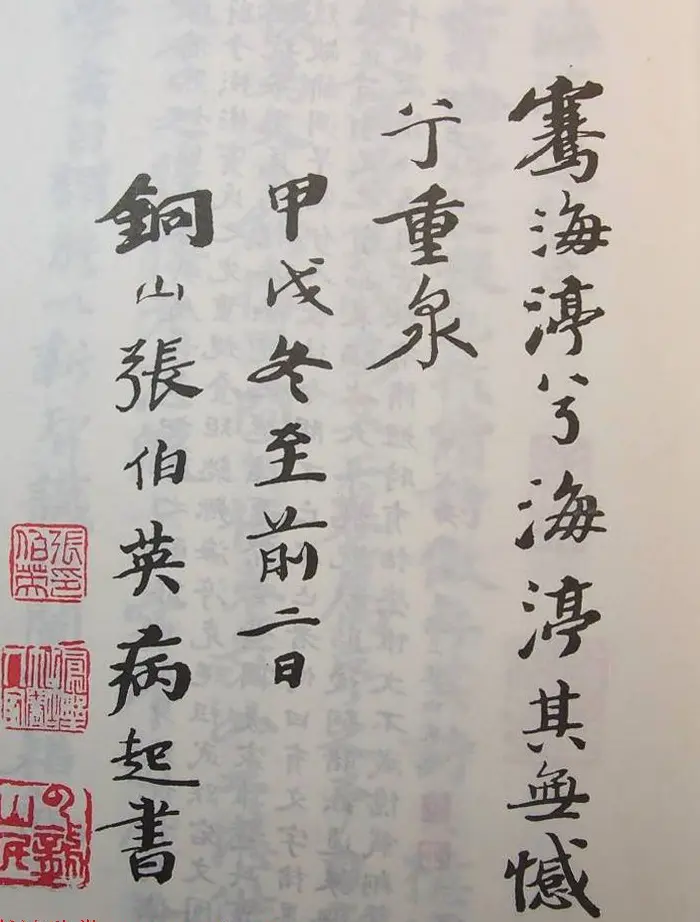 騫海渟兮海渟其無憾
于重泉
甲戌冬至前二日
銅山張伯英病起書
張印伯英
云龍山民